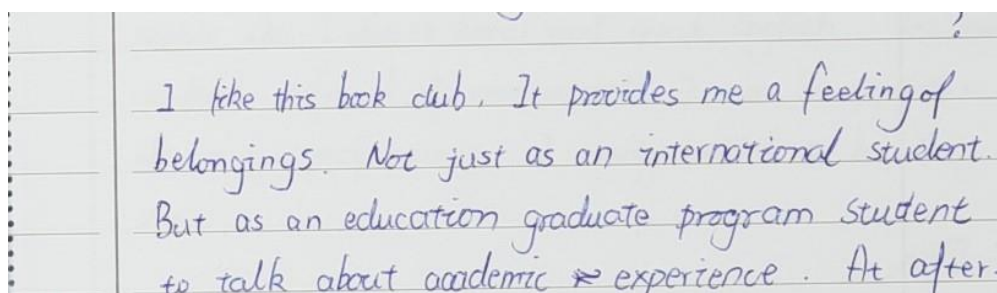 ?
I like this book club. It provides me a feeling of
belongings. Not just as an international student.
But as an education graduate program student
to talk about academic experience. At after.